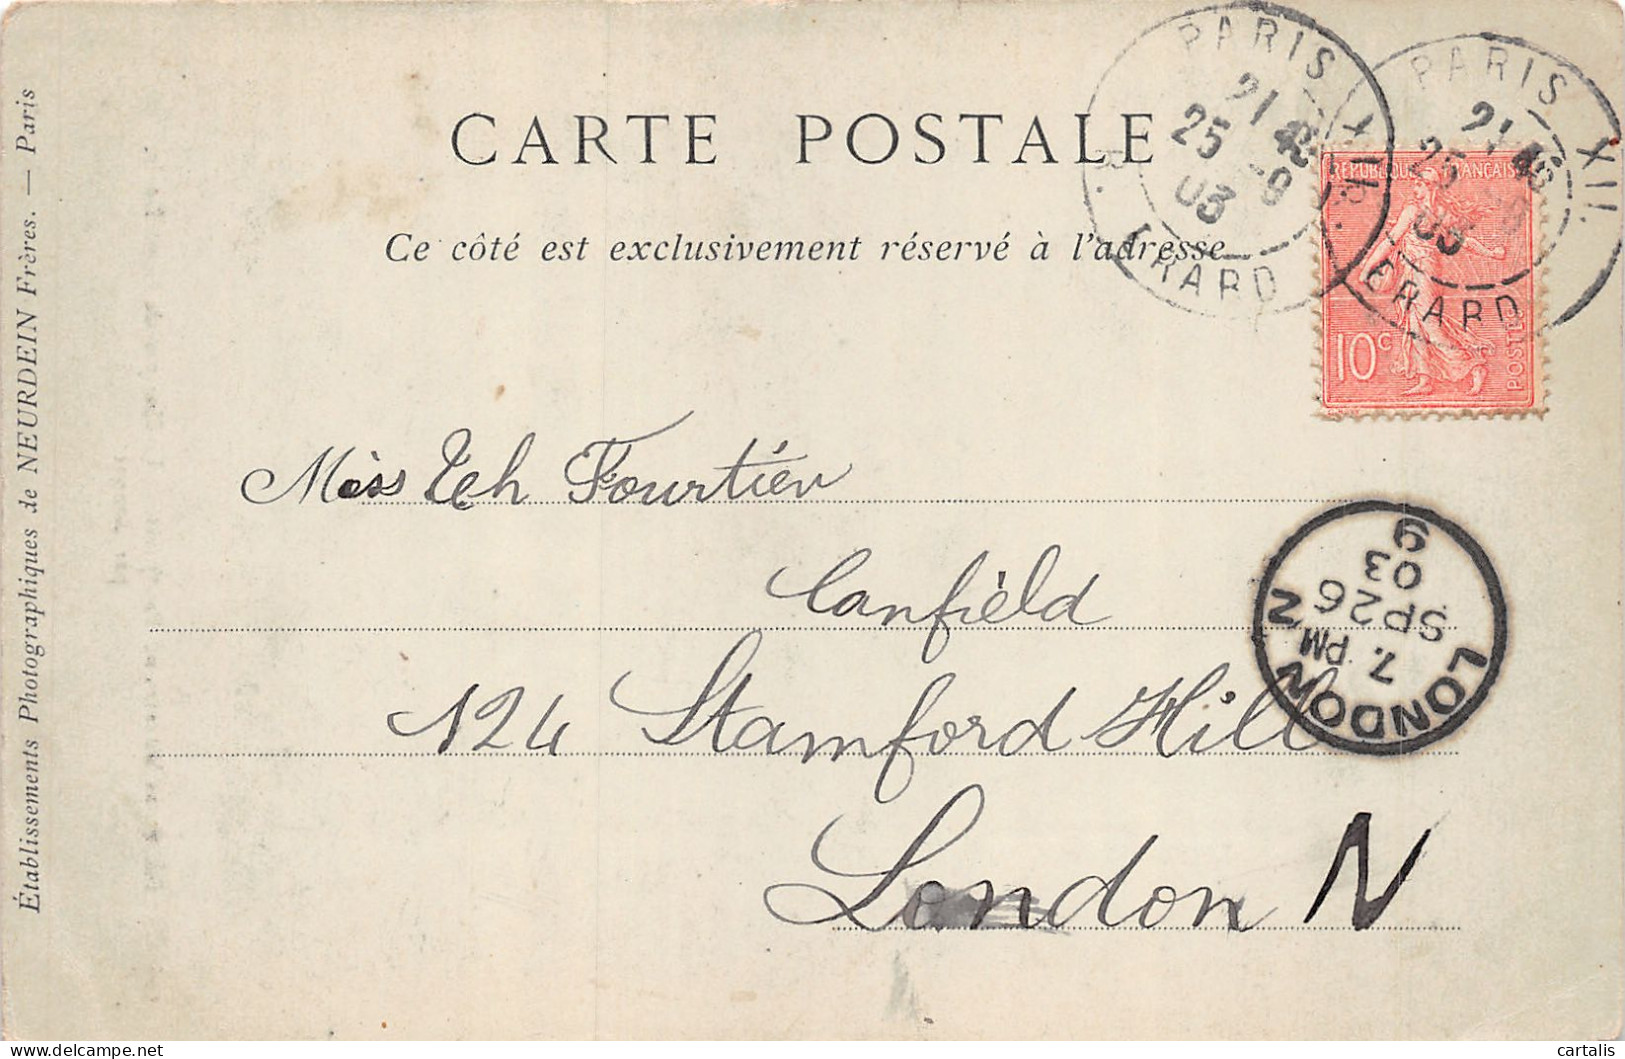 CARTE POSTALE
Ce côté est exclusivement réservé à l'adresse
Établissements Photographiques de NEURDEIN Frères. — Paris
PARIS XII.
21 45
25 -9
03
R. ERARD
PARIS XII.
21 45
25 -9
03
ERARD
REPUBLIQUE FRANÇAISE
10c
POSTES
Miss Fourtien
Canfield
124 Stamford Hill
London N
LONDON N
7. PM
SP 26
03
9
cartalis